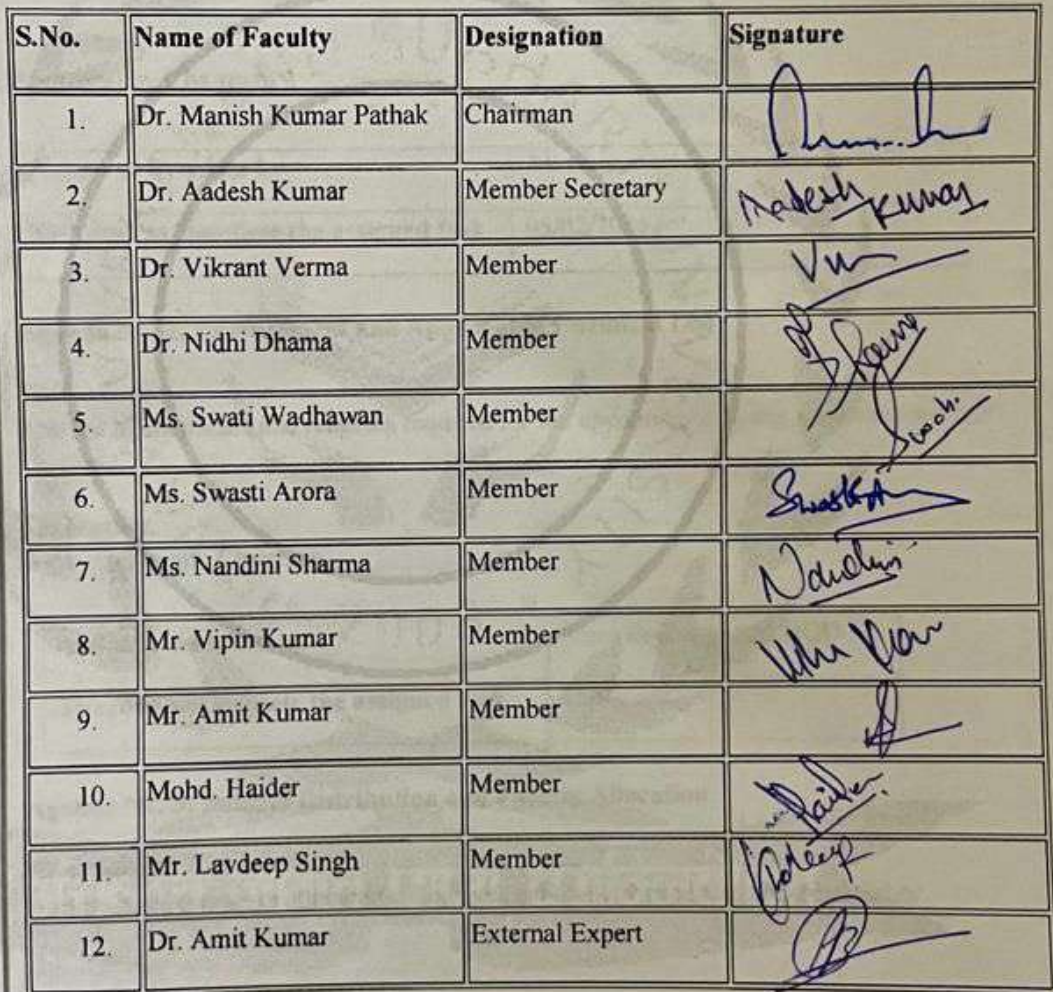 S.No. Name of Faculty Designation Signature
1. Dr. Manish Kumar Pathak Chairman
2. Dr. Aadesh Kumar Member Secretary Aadesh Kumar
3. Dr. Vikrant Verma Member
4. Dr. Nidhi Dhama Member Dhama
5. Ms. Swati Wadhawan Member
6. Ms. Swasti Arora Member Swasti
7. Ms. Nandini Sharma Member Nandini
8. Mr. Vipin Kumar Member
9. Mr. Amit Kumar Member
10. Mohd. Haider Member Haider
11. Mr. Lavdeep Singh Member
12. Dr. Amit Kumar External Expert